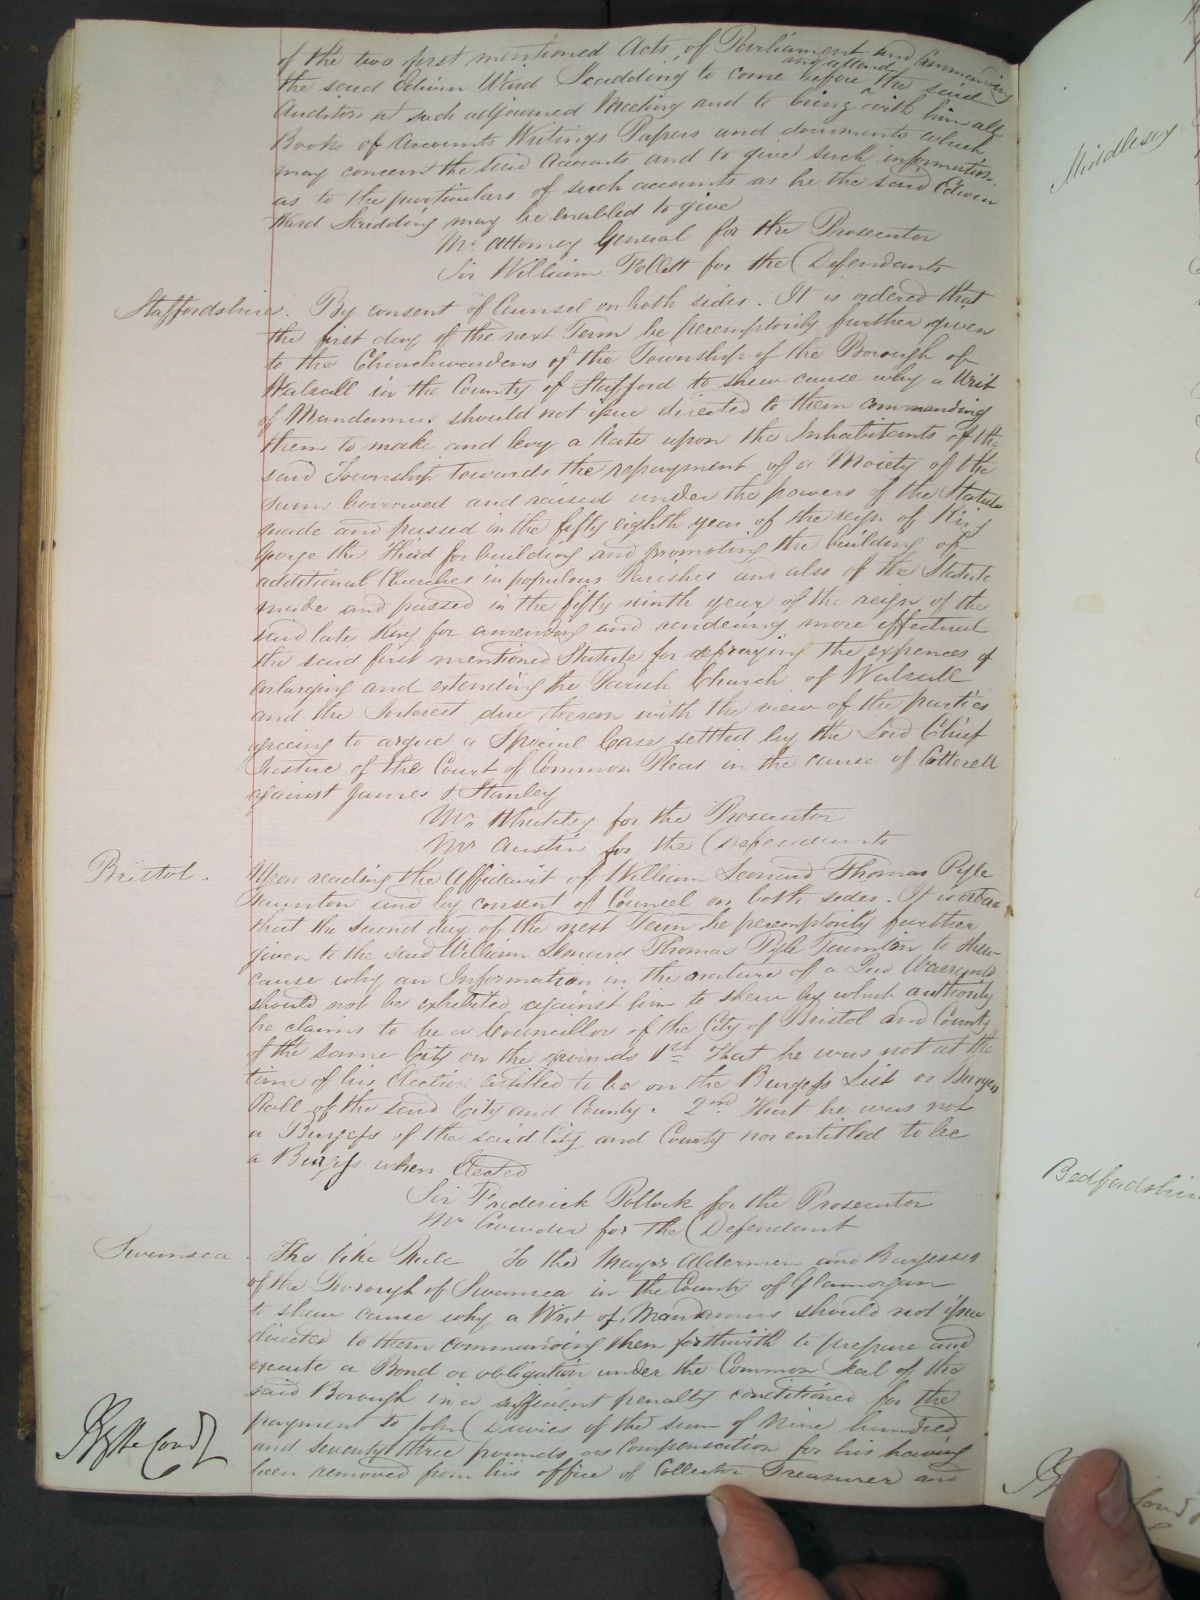 of the two first mentioned Acts of Parliament and Commanding
the said Edwin Ward Scadding to come and attend before the said
Auditors at such adjourned Meeting and to bring with him all
Books of Accounts Writings Papers and documents which
may concern the said Accounts and to give such information
as to the particulars of such accounts as he the said Edwin
Ward Scadding may be enabled to give
Mr. Attorney General for the Prosecutor
Sir William Follett for the Defendants
Staffordshire. By consent of Counsel on both sides. It is ordered that
the first day of the next Term be peremptorily further given
to the Churchwardens of the Township of the Borough of
Walsall in the County of Stafford to shew cause why a Writ
of Mandamus should not issue directed to them commanding
them to make and levy a Rate upon the Inhabitants of the
said Township towards the repayment of a Moiety of the
sums borrowed and raised under the powers of the Statute
made and passed in the fifty eighth year of the reign of King
George the Third for building and promoting the building of
additional Churches in populous Parishes and also of the Statute
made and passed in the fifty ninth year of the reign of the
said late King for amending and rendering more effectual
the said first mentioned Statute for defraying the expences of
enlarging and extending the Parish Church of Walsall
and the Interest due thereon with the view of the parties
agreeing to argue a Special Case settled by the Lord Chief
Justice of the Court of Common Pleas in the cause of Cotterell
against James & Stanley
Mr. Whateley for the Prosecutor
Mr Austin for the Defendants
Bristol. Upon reading the Affidavit of William Leonard Thomas Pyle
Taunton and by consent of Counsel on both sides. It is ordered
that the second day of the next Term be peremptorily further
given to the said William Leonard Thomas Pyle Taunton to shew
cause why an Information in the nature of a Quo Warranto
should not be exhibited against him to shew by which authority
he claims to be a Councillor of the City of Bristol and County
of the same City on the grounds 1st That he was not at the
time of his Election entitled to be on the Burgess List or Burgess
Roll of the said City and County. 2nd That he was not
a Burgess of the said City and County nor entitled to be
a Burgess when Elected
Sir Frederick Pollock for the Prosecutor
Mr Crowder for the Defendant
Swansea. The like Rule To the Mayor Aldermen and Burgesses
of the Borough of Swansea in the County of Glamorgan
to shew cause why a Writ of Mandamus should not issue
directed to them commanding them forthwith to prepare and
execute a Bond or obligation under the Common Seal of the
said Borough in a sufficient penalty conditioned for the
payment to John Davies of the sum of Nine hundred
and seventy three pounds as Compensation for his having
been removed from his office of Collector Treasurer and
By the Court
Middlesex
Bedfordshire